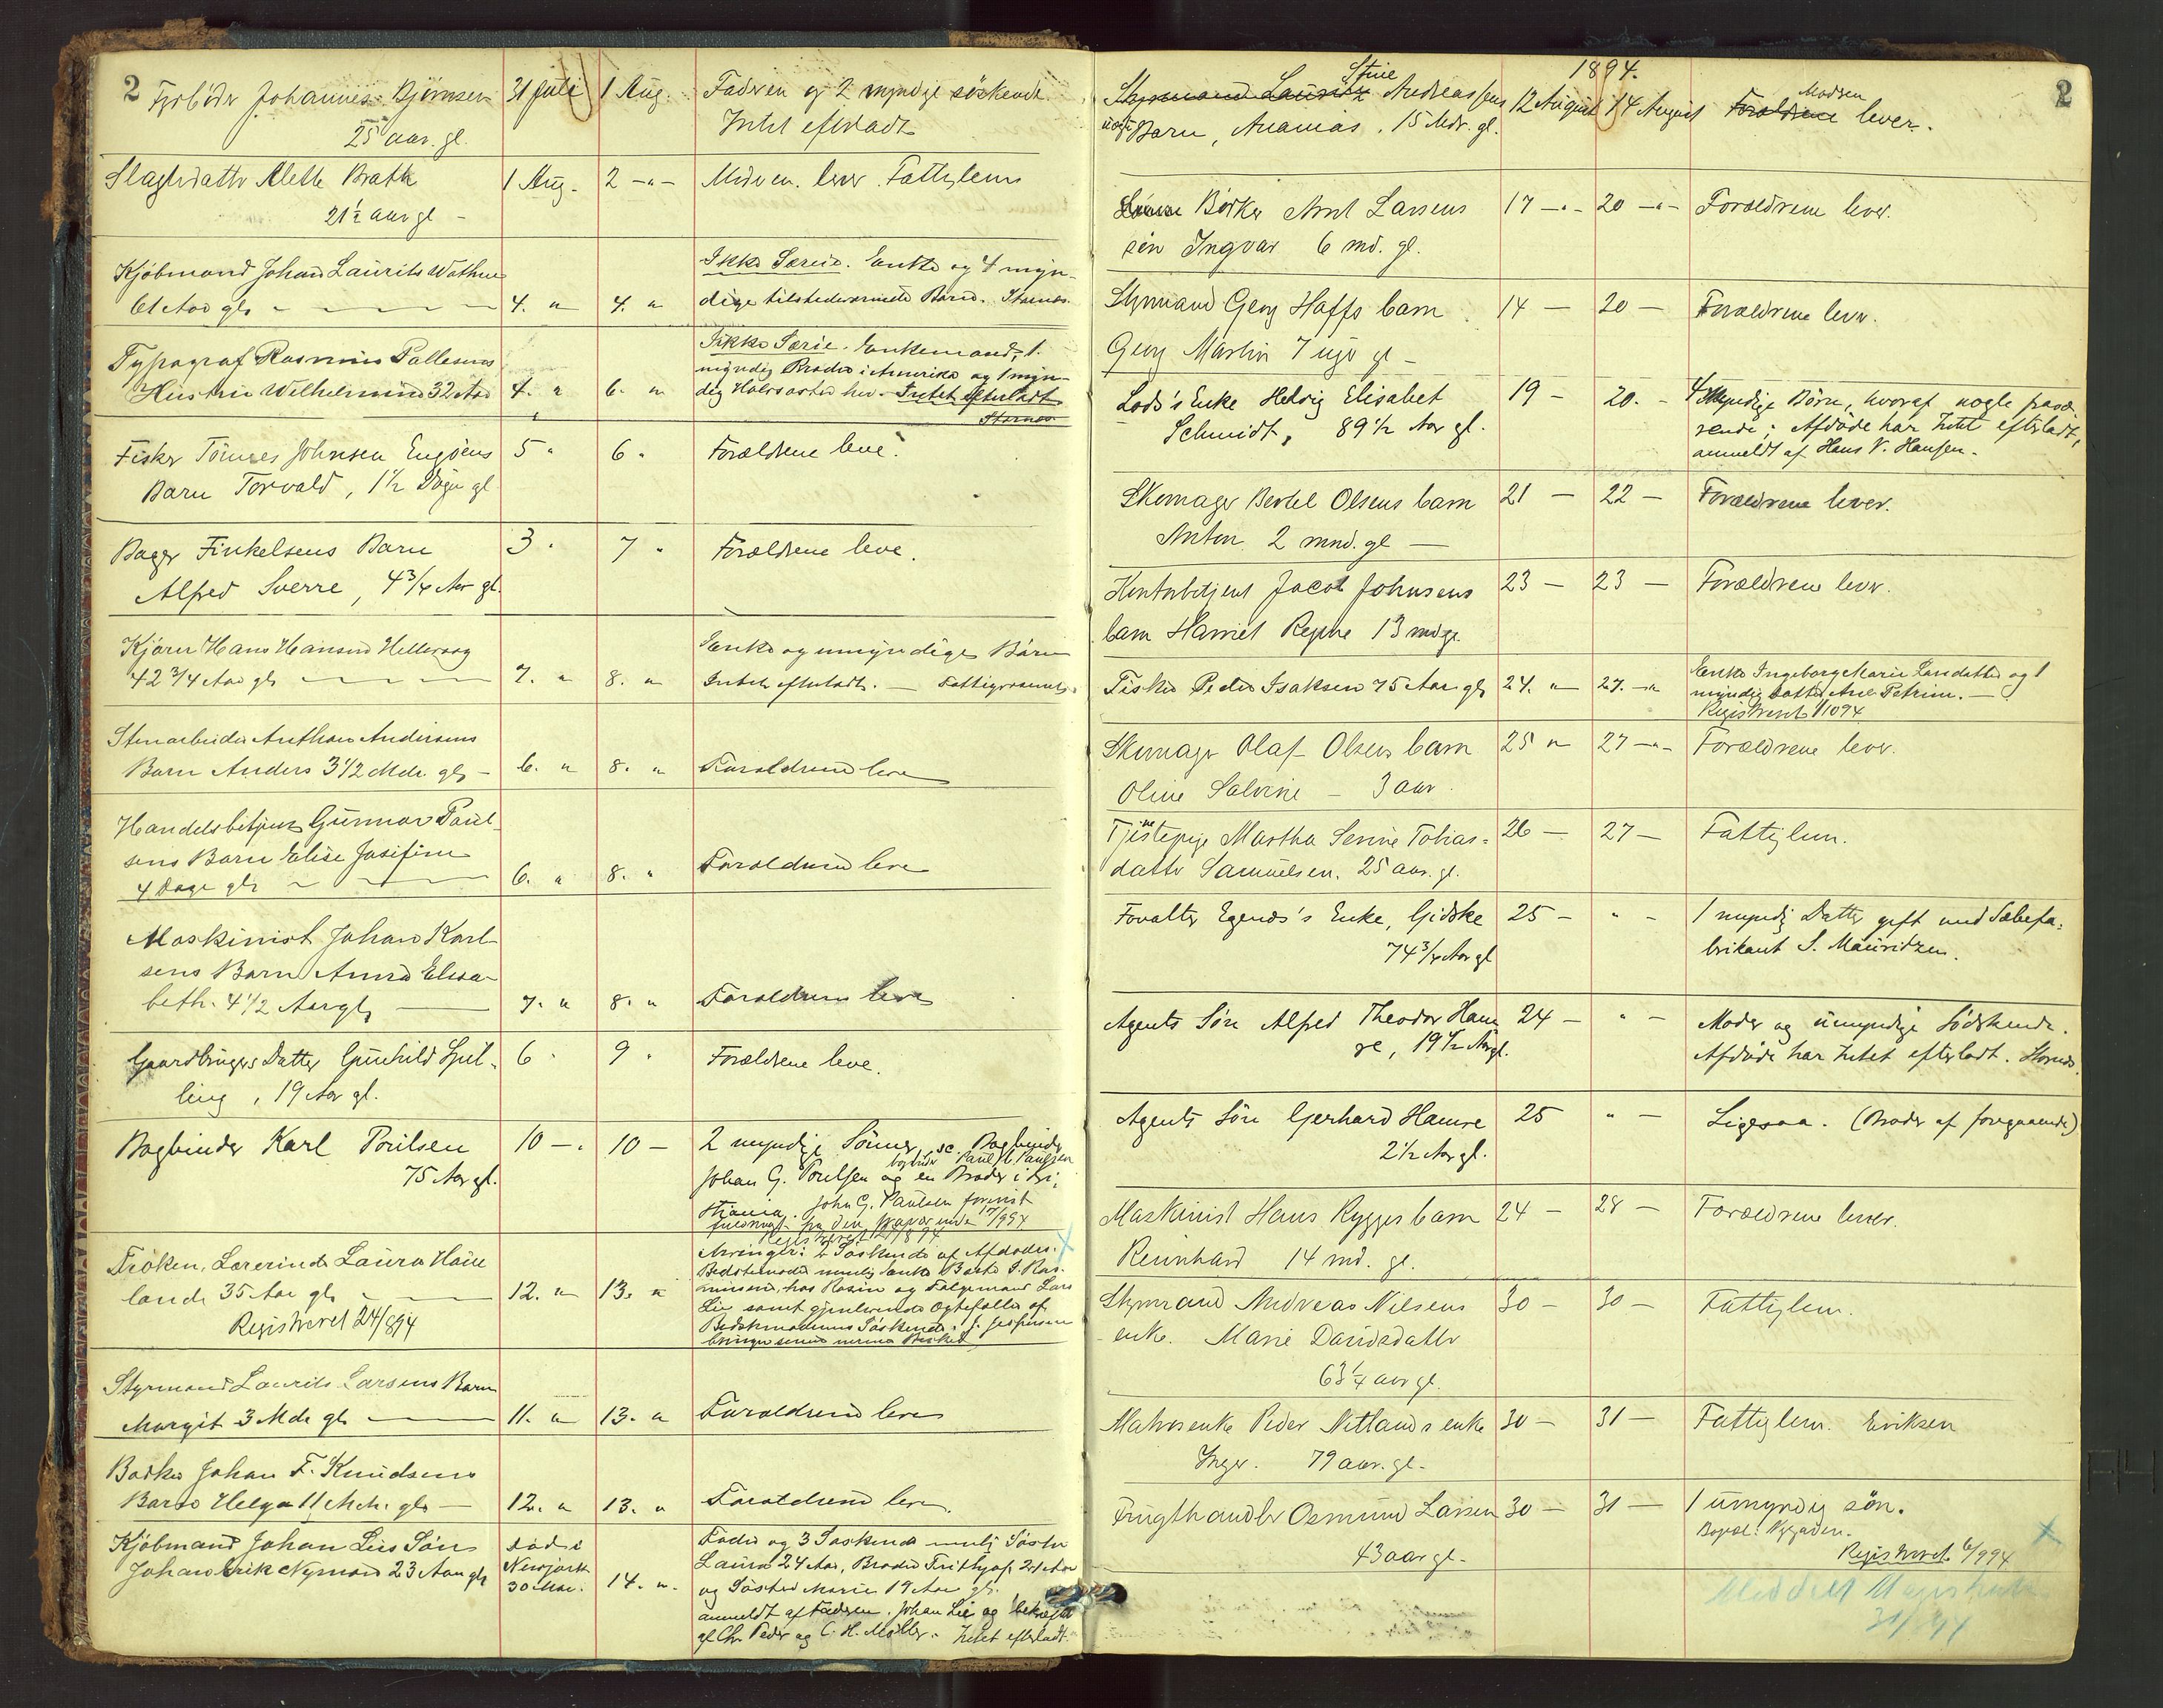 2
Fyrbøder Johannes Bjørnsen 31 Juli 1 Aug. Faderen og 2 myndige søskende
25 aar. gl. Intet efterladt
Slagterdatter Alette Bratt 1 Aug. 2 -"- Moderen lever. Fattiglem
21½ aar gl -
Kjøbmand Johan Laurits Wathne Ikke Særeie. Enke og 4 myn-
61 Aar gl. 4. " 4. " dige tilstedeværende Børn. Stamnes.
Typograf Rasmus Pallesens Ikke Særeie. Enkemand, 1.
myndig Broder i Amerika og 1 myn-
Hustru Wilhelmine 32 Aar 4. " 6. " dig Halvsøster her. Intet efterladt
Stornæs
Fisker Tönnes Johnsen Engøens 5 " 6 " Forældrene leve.
Barn Torvald, 1½ Døgn gl
Bager Finkelsens Barn 3 " 7 " Forældrene leve.
Alfred Sverre, 4¾ Aar gl.
Kjører Hans Hansen Hellevaag Enke og umyndige Børn
42 3/4 Aar gl. 7. " 8. " Intet efterladt. — Fattigvæsenet.
Stenarbeider Anthon Andersens
Barn Anders 3 1/2 Mdr. gl. - 6. " 8. " Forældrene leve
Handelsbetjent Gunnar Paul-
sens Barn Elise Josefine
4 Dage gl. 6. " 8. " Forældrene leve
Maskinist Johan Karl-
sens Barn Anna Elisa-
beth. 4 1/2 Aar gl. 7. " 8. " Forældrene leve
Gaardbrugers Datter Gunhild Spil- 6 " 9 " Forældrene leve.
ling, 19 Aar gl.
Bogbinder Karl Poulsen 10 — " 10 — 2 myndige Sønner, sc. Bogbinder
75 Aar gl. bogbinder Paul C. Paulsen
Johan G. Poulsen og en Broder i Kri-
stiania. John G. Paulsen forevist
fuldmagt fra den 17/994
Registreret 21/8 94
Frøken, Lærerinde Laura Haue Arvinger: Søskende af Afdødes
land 35 Aar gl. 12. " 13. " Bedstemoder
Registreret 24/894 samt gjenlevende Ægtefælle af
Bedstemoderens Søskende. J. Jespersen
bringer senere nærmere Besked
Styrmand Laurits Larsens Barn
Margit 3 Mdr gl. — 11. " 13. " Forældrene leve
Bødker Johan F. Knudsens
Barn Helga 11 Mdr. gl. — 12. " 13. " Forældrene leve.
Kjøbmand Johan Lies Søn død i Fader og 3 Søskende nemlig Søster
Johan Erik Nymand 23 Aar gl. Newjork Laura 24 Aar, Broder Frithjof 21 Aar
30 Mai. 14. " og Søster Marie 19 Aar gl.
anmeldt af Faderen. Johan Lie og bekræftet
af Chr. Peder og C. H. Møller. Intet efterladt.
1894.
2
Stine
Styrmand Lauritz Andreassens 12 August 14 August Modren
Forældrene lever.
uægte Barn, Ananias, 15 Mdr. gl.
Bødker Arnt Larsens 17 -"- 20 -"- Forældrene lever.
søn Ingvar 6 md. gl.
Styrmand Georg Haffs barn 14 — 20 — Forældrene lever.
Georg Martin 7 uger gl -
Lods's Enke Hedvig Elisabet 19 - 20. - 4 Myndige Børn, hvoraf nogle fravæ-
Schmidt, 89½ Aar gl. rende; Afdøde har Intet efterladt,
anmeldt af Hans V. Hansen.
Skomager Bertel Olsens barn 21 — 22 — Forældrene lever.
Anton 2 mnd. gl —
Kontorbetjent Jacob Johnsens 23 — 23 — Forældrene lever.
barn Harriet Regine 13 md gl.
Fisker Peder Isaksen 75 Aar gl 24. " 27. -" Enke Ingeborg Marie Larsdatter og 1
myndig Datter Ane Petrine. —
Registreret 1/1094
Skomager Olaf Olsens barn 25 " 27 -"- Forældrene lever.
Oline Salvine - 3 aar.
Tjenestepige Martha Serine Tobias- 26 — 27 — Fattiglem.
datter Samuelsen. 25 aar. gl.
Forvalter Egenæs's Enke, Gidske 25 - " - 1 myndig Datter gift med Sæbefa-
74¾ Aar gl brikant S. Mauritzen.
Agents Søn Alfred Theodor Ham 24 - " - Moder og umyndige Sødskende.
re, 19½ Aar gl. Afdøde har Intet efterladt. Stornæs.
Agents Søn Gerhard Hamre 25 " - Ligesaa. (Broder af foregaaende)
2½ Aar gl.
Maskinist Hans Rygges barn 24 - 28 - Forældrene lever.
Reinhard 14 md. gl.
Styrmand Andreas Nilsens 30 - 30 - Fattiglem.
enke. Marie Davidsdatter
63¼ aar gl.
Matrosenke Peder Netlands enke 30 - 31 — Fattiglem. Eriksen
Inger. 79 aar. gl.
Frugthandler Osmund Larsen 30 — 31 — 1 umyndig søn.
Bopæl: Nygaden.
43 aar gl - Registreret 6/994
Meddelt